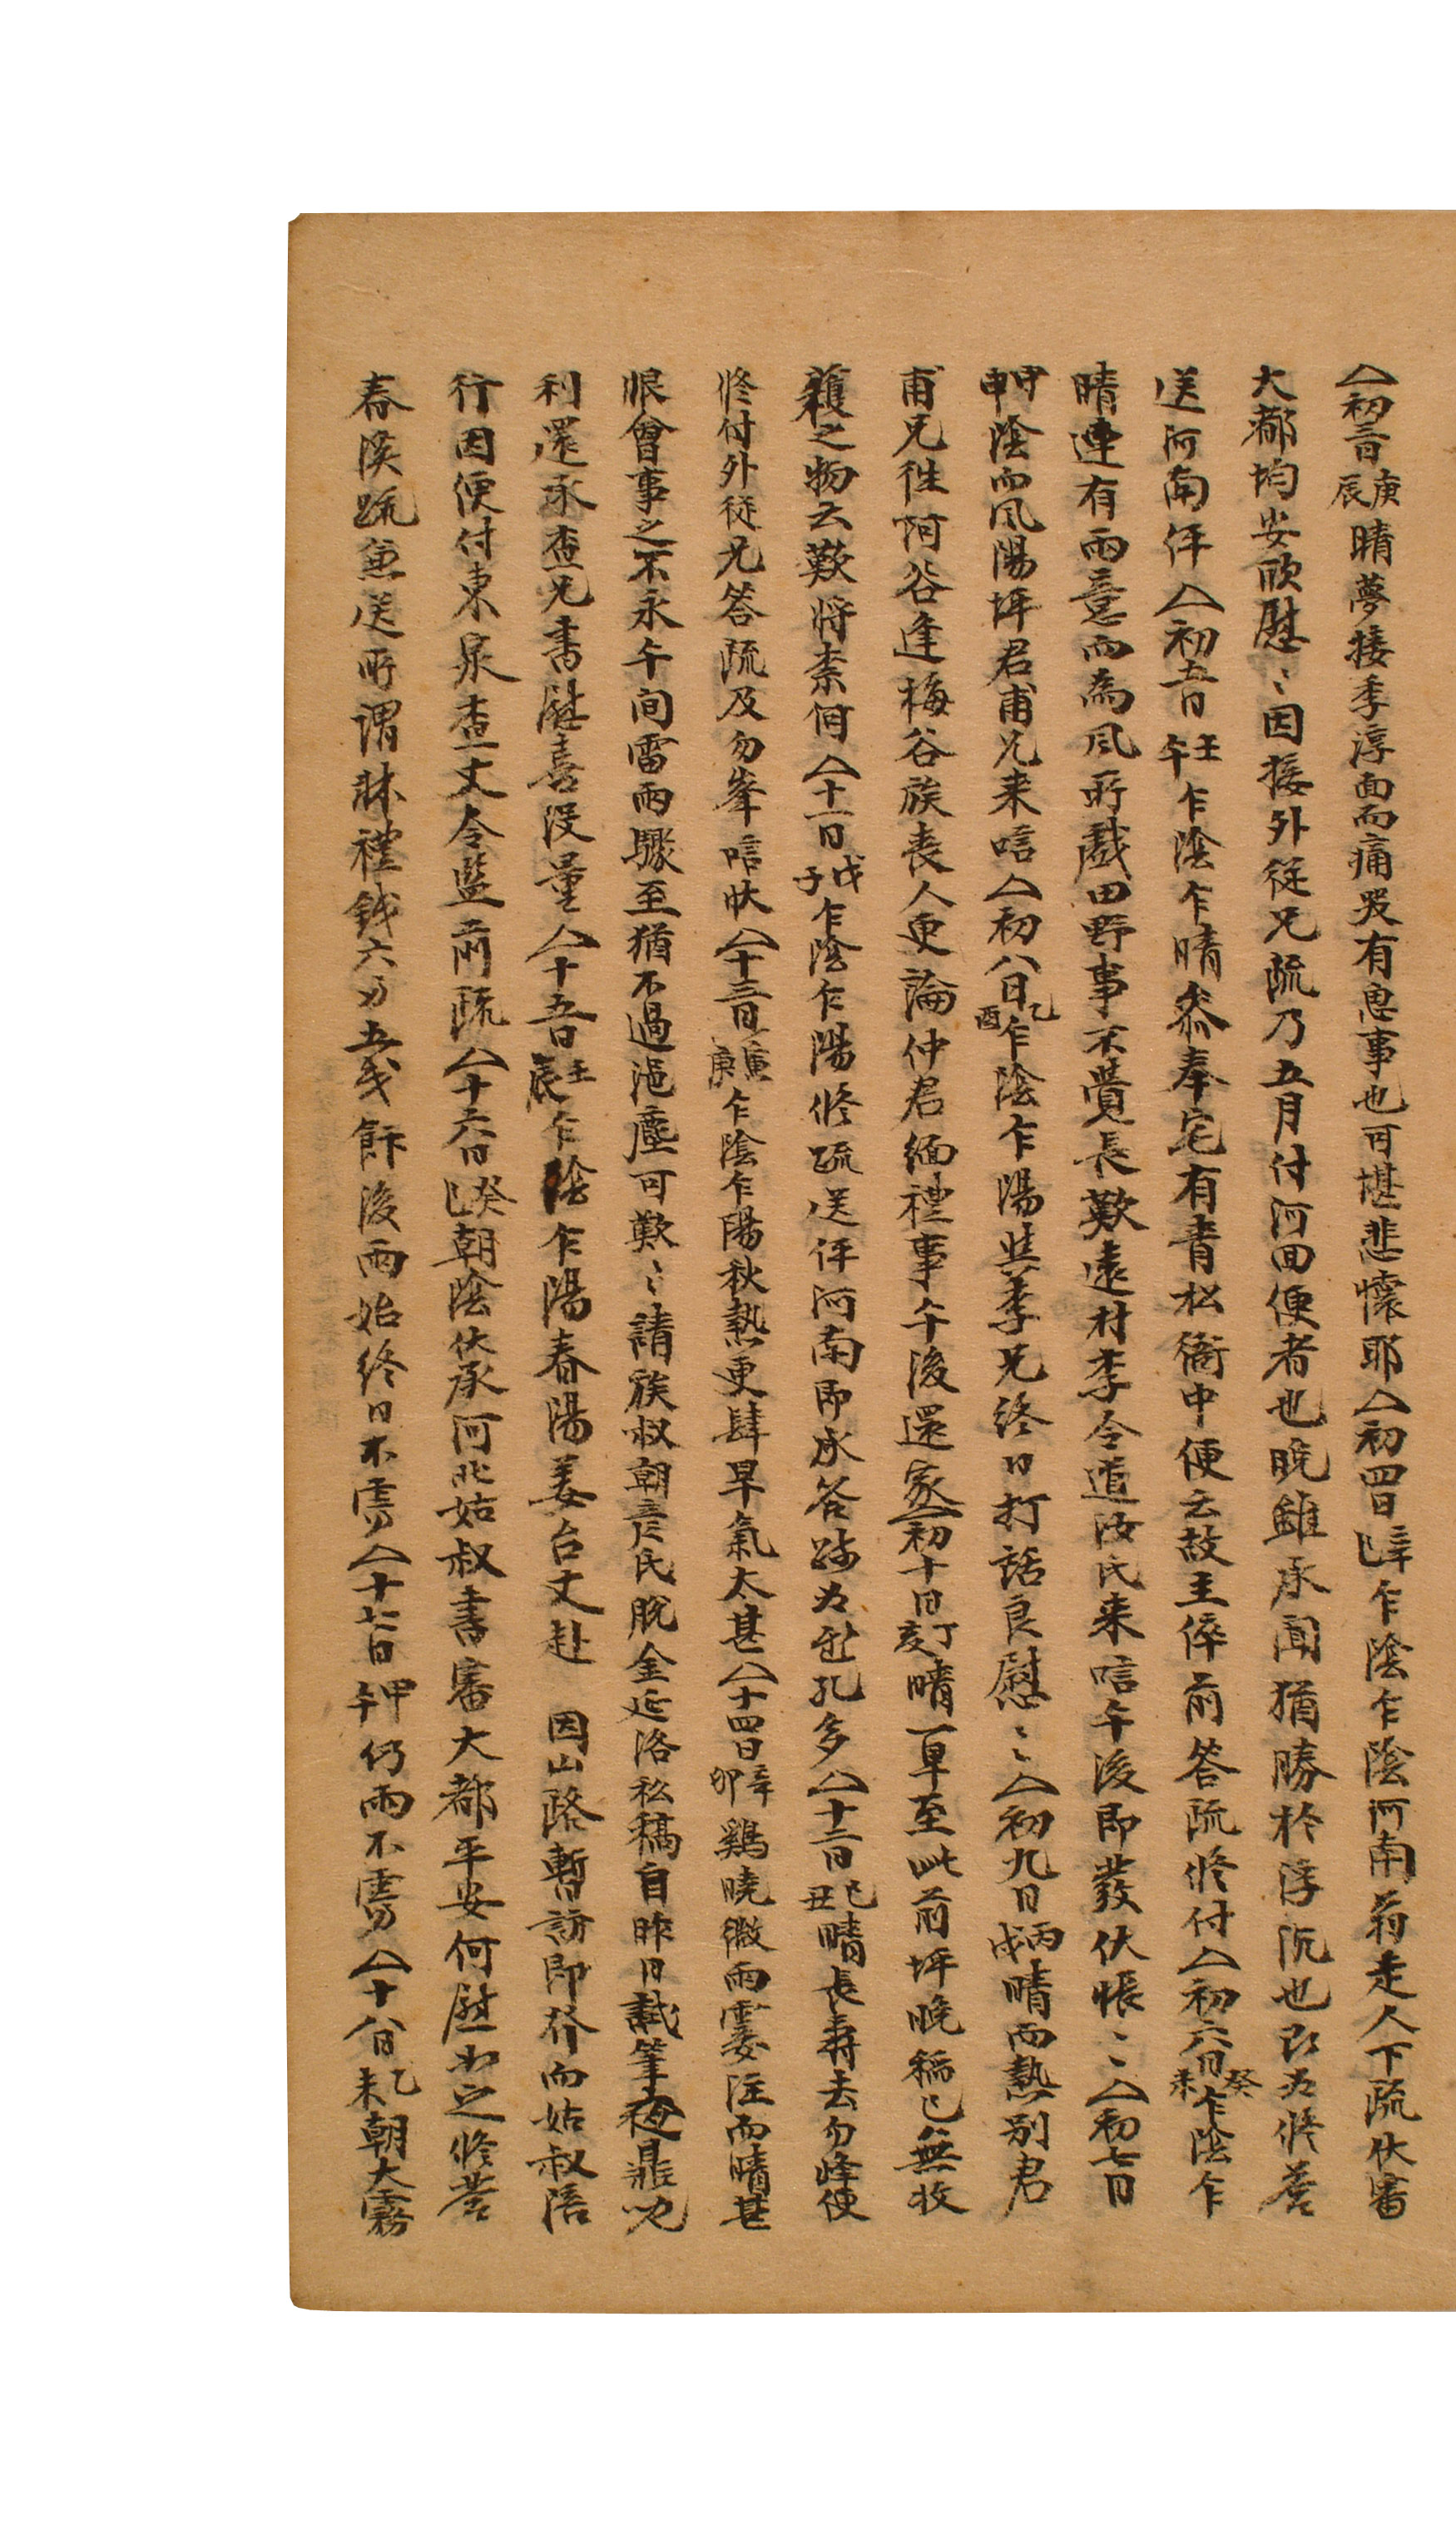 △初三日庚辰晴夢接季淳面而痛哭有思事也可堪悲懷耶△初四日辛巳乍陰乍陰河南荊走人下疏伏審
大都均安欣慰〻因接外從兄疏乃五月付河回便者也晚雖承聞猶勝於浮沉也即爲修答
送河南伻△初五日壬午乍陰乍晴參奉宅有青松衙中便云故主倅前答疏修付△初六日癸未乍陰乍
晴連有雨意而為風所戱田野事不覺長歎遠村李令道汝氏来唁午後即發伏悵〻〻△初七日
甲申陰而風陽坪君甫兄来唁△初八日乙酉乍陰乍陽與季兄終日打話良慰〻〻△初九日丙戌晴而熱別君
甫兄徃阿谷逢梅谷族丧人更論仲君緬禮事午後還家△初十日丁亥晴一旱至此前坪晚稲已無收
穫之物云歎將柰何△十一日戊子乍陰乍陽修疏送伻河南即承答 爲慰孔多△十二日己丑晴長壽去勿峰便
修付外從兄答疏及勿峯唁狀△十三日庚寅乍陰乍陽秋熱更肆旱氣太甚△十四日辛卯鷄曉微雨霎注而晴甚
恨會事之不永午间雷雨驟至猶不過浥塵可歎〻請族叔朝彦氏脫金延洛私稿自昨日試筆 鼎兒
利還承查兄書慰喜沒量△十五日壬辰乍陰乍陽春陽姜台丈赴 因山路暫訪即發而姑叔偕
行因便付東泉查丈令監前疏△十六日癸巳朝陰伏承河北姑叔書審大都平安何慰如之修答
春溪疏兼送所謂賻禮錢六刃五戔餠後雨始終日不霽△十七日甲午仍雨不霽△十八日乙未朝大霧